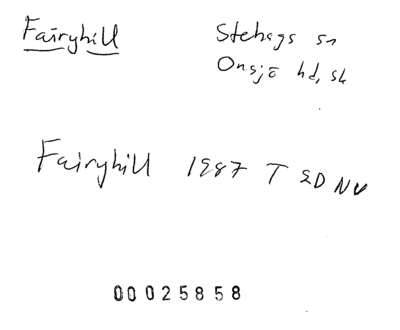 Fairyhill
Stehags sn
Onsjö hd, sk
Fairyhill 1987 T ED NV
00025858